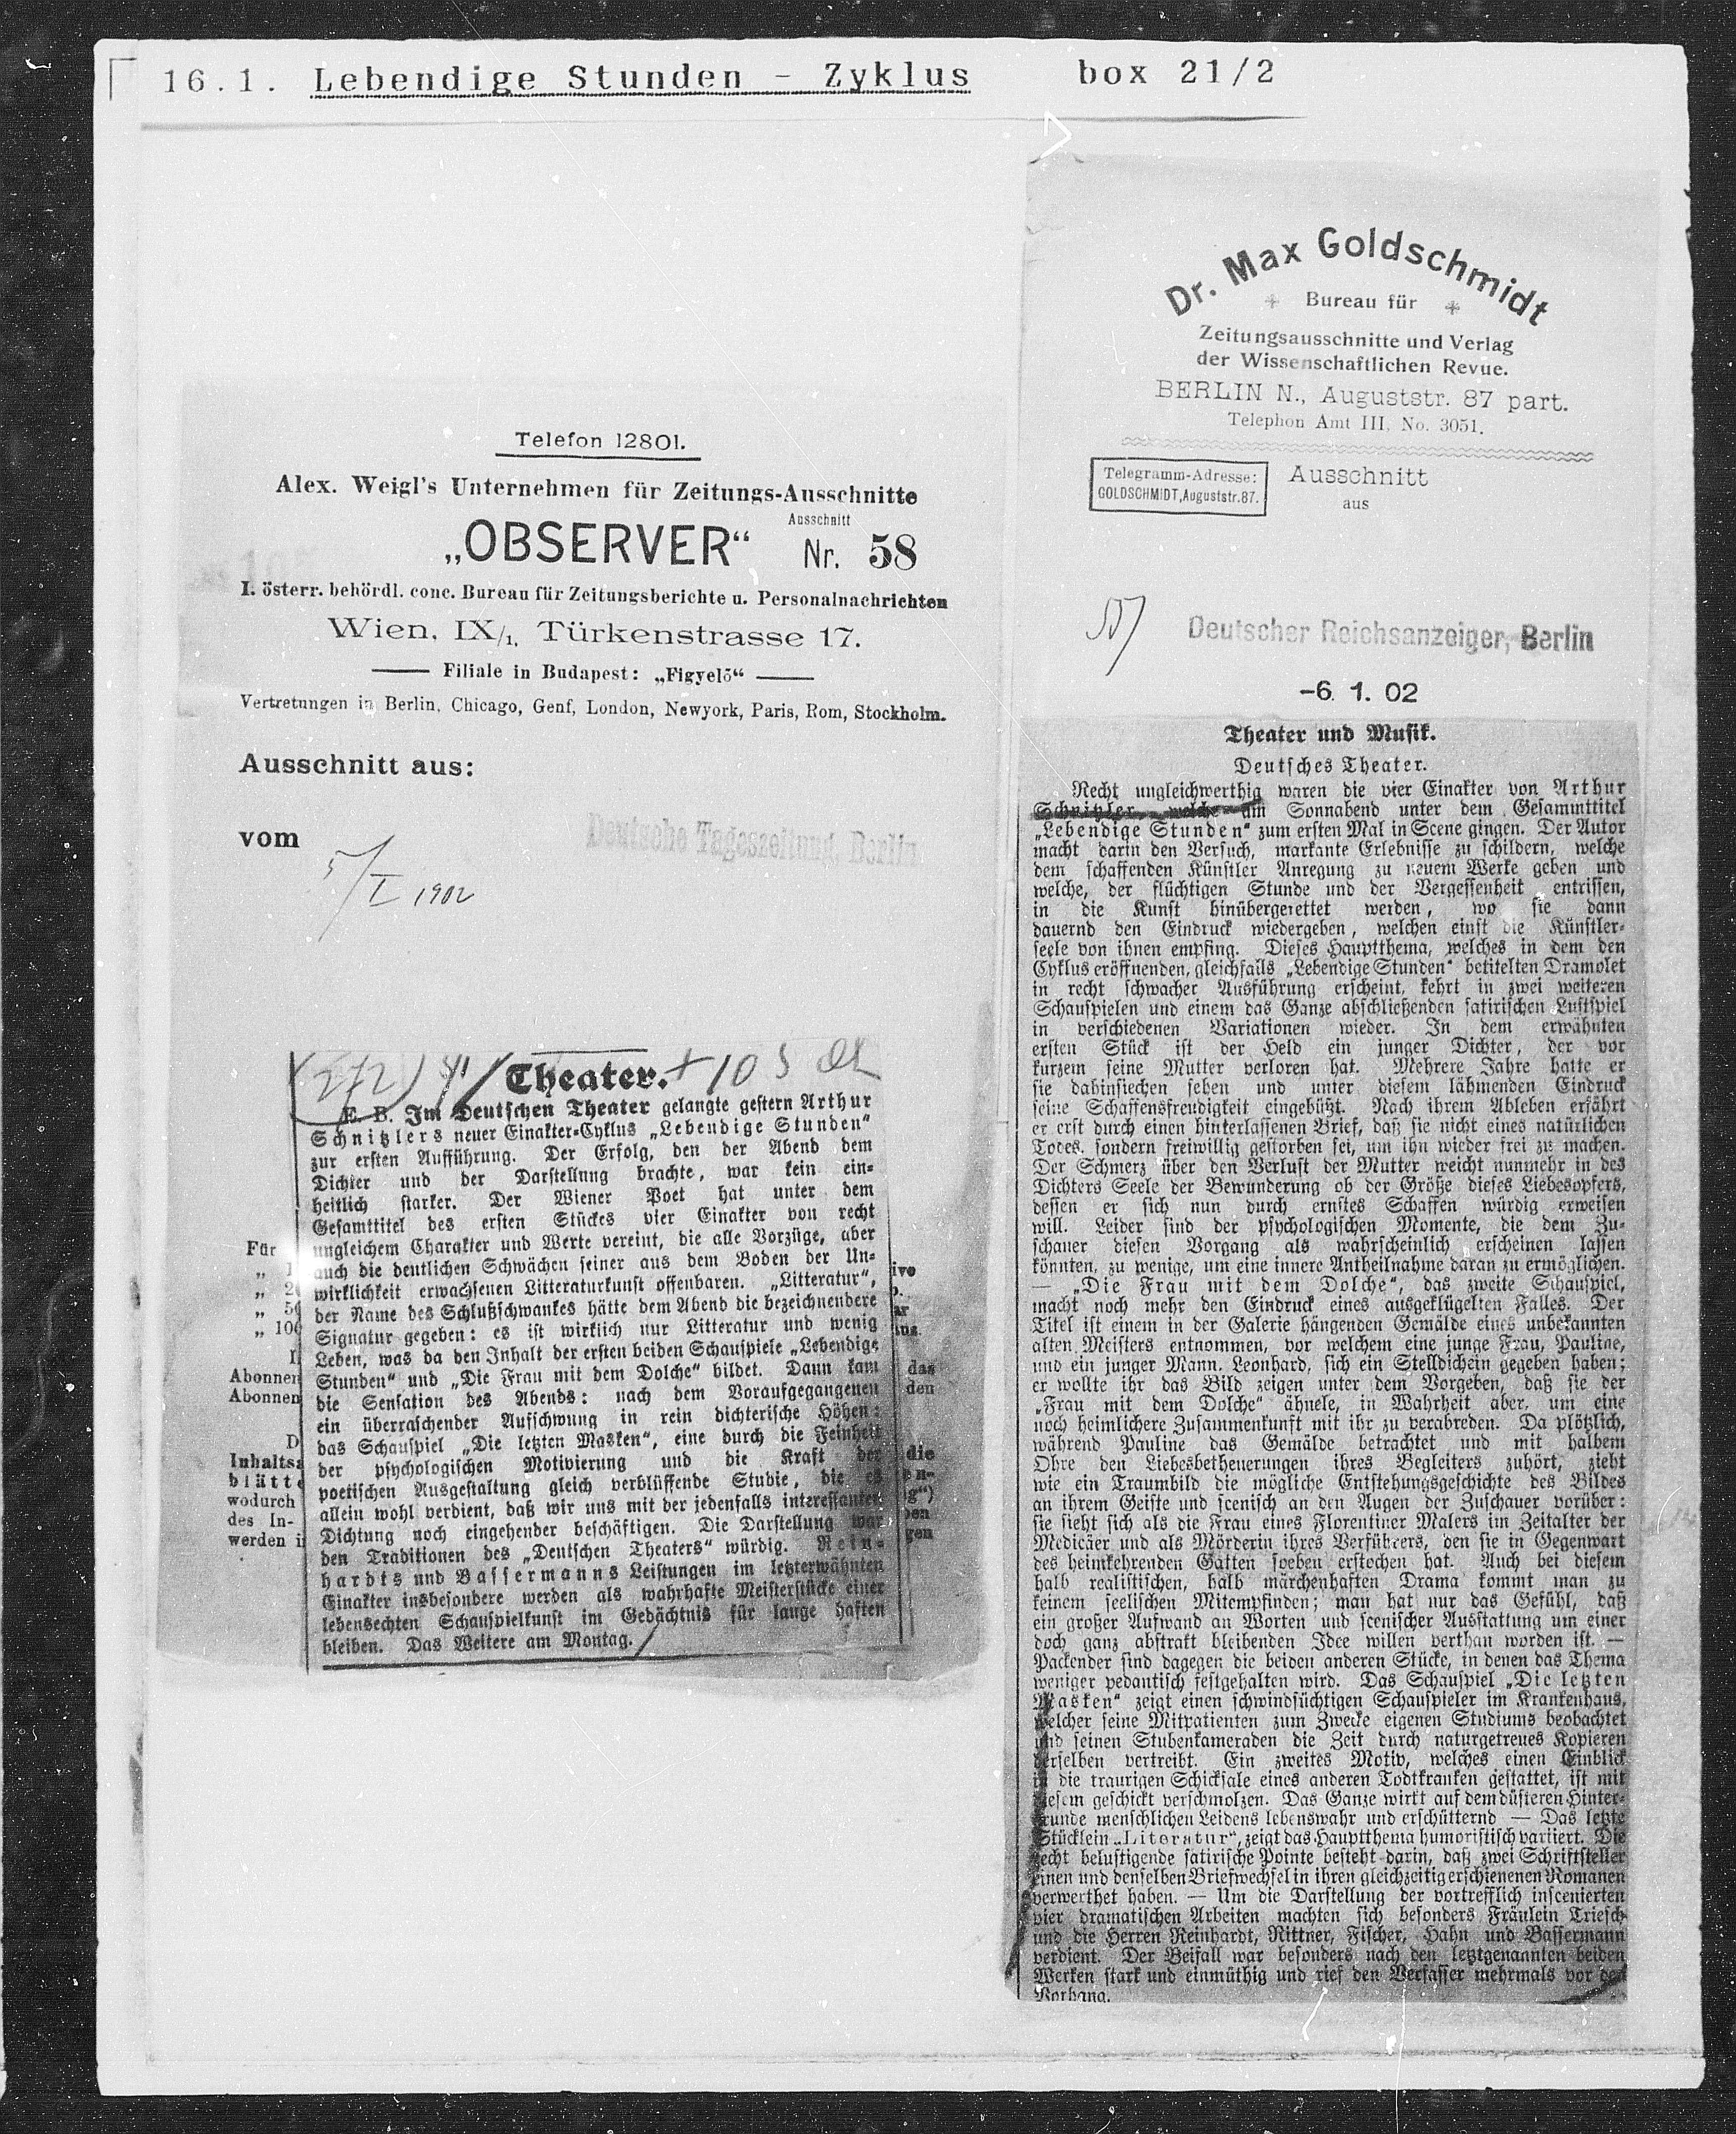 16.1. Lebendige Stunden - Zyklus box 21/2
Telefon 12801.
Alex. Weigl's Unternehmen für Zeitungs-Ausschnitte
„OBSERVER“ Ausschnitt Nr. 58
I. österr. behördl. conc. Bureau für Zeitungsberichte u. Personalnachrichten
Wien, IX/1, Türkenstrasse 17.
Filiale in Budapest: „Figyelő“
Vertretungen in Berlin, Chicago, Genf, London, Newyork, Paris, Rom, Stockholm.
Ausschnitt aus:
Deutsche Tageszeitung, Berlin
vom
5/I 1902
(272)
Theater.
E. B. Im Deutschen Theater gelangte gestern Arthur
Schnitzlers neuer Einakter-Cyklus „Lebendige Stunden“
zur ersten Aufführung. Der Erfolg, den der Abend dem
Dichter und der Darstellung brachte, war kein ein-
heitlich starker. Der Wiener Poet hat unter dem
Gesamttitel des ersten Stückes vier Einakter von recht
ungleichem Charakter und Werte vereint, die alle Vorzüge, aber
auch die deutlichen Schwächen seiner aus dem Boden der Un-
wirklichkeit erwachsenen Litteraturkunst offenbaren. „Litteratur“,
der Name des Schlußschwankes hätte dem Abend die bezeichnendere
Signatur gegeben: es ist wirklich nur Litteratur und wenig
Leben, was da den Inhalt der ersten beiden Schauspiele „Lebendige
Stunden“ und „Die Frau mit dem Dolche“ bildet. Dann kam
die Sensation des Abends: nach dem Voraufgegangenen
ein überraschender Aufschwung in rein dichterische Höhen:
das Schauspiel „Die letzten Masken“, eine durch die Feinheit
der psychologischen Motivierung und die Kraft der
poetischen Ausgestaltung gleich verblüffende Studie, die es
allein wohl verdient, daß wir uns mit der jedenfalls interessanten
Dichtung noch eingehender beschäftigen. Die Darstellung war
den Traditionen des „Deutschen Theaters“ würdig. Rein-
hardts und Bassermanns Leistungen im letzterwähnten
Einakter insbesondere werden als wahrhafte Meisterstücke einer
lebensechten Schauspielkunst im Gedächtnis für lange haften
bleiben. Das Weitere am Montag.
Für
Abonnen
Abonnen
Inhalts
blätte
wodurch
des In-
werden i
das
den
die
gen
Dr. Max Goldschmidt
Bureau für
Zeitungsausschnitte und Verlag
der Wissenschaftlichen Revue.
BERLIN N., Auguststr. 87 part.
Telephon Amt III, No. 3051.
Telegramm-Adresse:
GOLDSCHMIDT, Auguststr. 87.
Ausschnitt
aus
Deutscher Reichsanzeiger, Berlin
-6. 1. 02
Theater und Musik.
Deutsches Theater.
Recht ungleichwerthig waren die vier Einakter von Arthur
Schnitzler, welche am Sonnabend unter dem Gesammttitel
„Lebendige Stunden“ zum ersten Mal in Scene gingen. Der Autor
macht darin den Versuch, markante Erlebnisse zu schildern, welche
dem schaffenden Künstler Anregung zu neuem Werke geben und
welche, der flüchtigen Stunde und der Vergessenheit entrissen,
in die Kunst hinübergerettet werden, wo sie dann
dauernd den Eindruck wiedergeben, welchen einst die Künstler-
seele von ihnen empfing. Dieses Hauptthema, welches in dem den
Cyklus eröffnenden, gleichfalls „Lebendige Stunden“ betitelten Dramolet
in recht schwacher Ausführung erscheint, kehrt in zwei weiteren
Schauspielen und einem das Ganze abschließenden satirischen Lustspiel
in verschiedenen Variationen wieder. In dem erwähnten
ersten Stück ist der Held ein junger Dichter, der vor
kurzem seine Mutter verloren hat. Mehrere Jahre hatte er
sie dahinsiechen sehen und unter diesem lähmenden Eindruck
seine Schaffensfreudigkeit eingebüßt. Nach ihrem Ableben erfährt
er erst durch einen hinterlassenen Brief, daß sie nicht eines natürlichen
Todes, sondern freiwillig gestorben sei, um ihn wieder frei zu machen.
Der Schmerz über den Verlust der Mutter weicht nunmehr in des
Dichters Seele der Bewunderung ob der Größe dieses Liebesopfers,
dessen er sich nun durch ernstes Schaffen würdig erweisen
will. Leider sind der psychologischen Momente, die dem Zu-
schauer diesen Vorgang als wahrscheinlich erscheinen lassen
könnten, zu wenige, um eine innere Antheilnahme daran zu ermöglichen.
— „Die Frau mit dem Dolche“, das zweite Schauspiel,
macht noch mehr den Eindruck eines ausgeklügelten Falles. Der
Titel ist einem in der Galerie hängenden Gemälde eines unbekannten
alten Meisters entnommen, vor welchem eine junge Frau, Pauline,
und ein junger Mann, Leonhard, sich ein Stelldichein gegeben haben;
er wollte ihr das Bild zeigen unter dem Vorgeben, daß sie der
„Frau mit dem Dolche“ ähnele, in Wahrheit aber, um eine
noch heimlichere Zusammenkunft mit ihr zu verabreden. Da plötzlich,
während Pauline das Gemälde betrachtet und mit halbem
Ohre den Liebesbetheuerungen ihres Begleiters zuhört, zieht
wie ein Traumbild die mögliche Entstehungsgeschichte des Bildes
an ihrem Geiste und scenisch an den Augen der Zuschauer vorüber:
sie sieht sich als die Frau eines Florentiner Malers im Zeitalter der
Medicäer und als Mörderin ihres Verführers, den sie in Gegenwart
des heimkehrenden Gatten soeben erstochen hat. Auch bei diesem
halb realistischen, halb märchenhaften Drama kommt man zu
keinem seelischen Mitempfinden; man hat nur das Gefühl, daß
ein großer Aufwand an Worten und scenischer Ausstattung um einer
doch ganz abstrakt bleibenden Idee willen verthan worden ist. —
Packender sind dagegen die beiden anderen Stücke, in denen das Thema
weniger pedantisch festgehalten wird. Das Schauspiel „Die letzten
Masken“ zeigt einen schwindsüchtigen Schauspieler im Krankenhaus,
welcher seine Mitpatienten zum Zwecke eigenen Studiums beobachtet
und seinen Stubenkameraden die Zeit durch naturgetreues Kopieren
derselben vertreibt. Ein zweites Motiv, welches einen Einblick
in die traurigen Schicksale eines anderen Todtkranken gestattet, ist mit
diesem geschickt verschmolzen. Das Ganze wirkt auf dem düsteren Hinter-
grunde menschlichen Leidens lebenswahr und erschütternd — Das letzte
Stücklein „Literatur“, zeigt das Hauptthema humoristisch variiert. Die
recht belustigende satirische Pointe besteht darin, daß zwei Schriftsteller
einen und denselben Briefwechsel in ihren gleichzeitig erschienenen Romanen
verwerthet haben. — Um die Darstellung der vortrefflich inscenierten
vier dramatischen Arbeiten machten sich besonders Fräulein Triesch
und die Herren Reinhardt, Rittner, Fischer, Hahn und Bassermann
verdient. Der Beifall war besonders nach den letztgenannten beiden
Werken stark und einmüthig und rief den Verfasser mehrmals vor den
Vorhang.